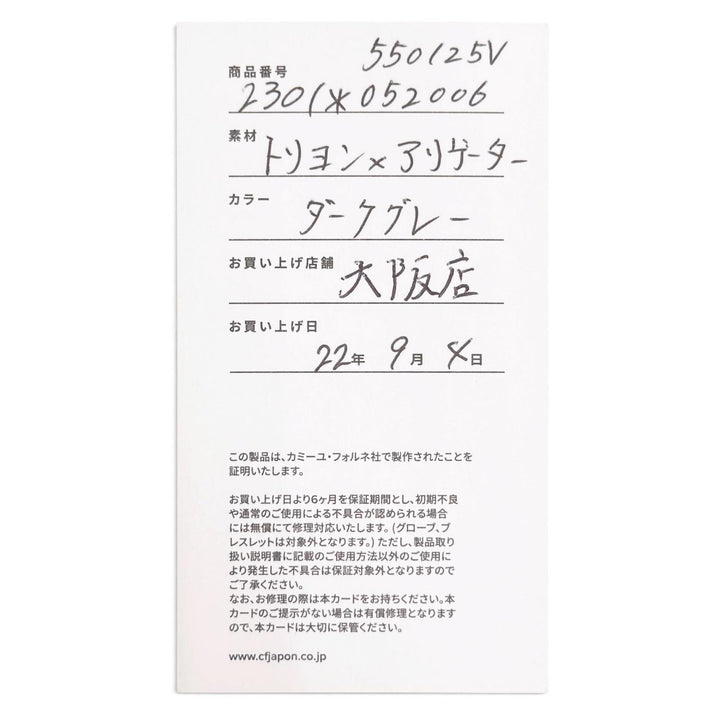 550125V
商品番号
2301*052006
素材 トリヨン×アリゲーター
カラー ダークグレー
お買い上げ店舗 大阪店
お買い上げ日
22年 9月 4日
この製品は、カミーユ・フォルネ社で製作されたことを
証明いたします。
お買い上げ日より6ヶ月を保証期間とし、初期不良
や通常のご使用による不具合が認められる場合
には無償にて修理対応いたします。(グローブ、ブ
レスレットは対象外となります。)ただし、製品取り
扱い説明書に記載のご使用方法以外のご使用に
より発生した不具合は保証対象外となりますので
ご了承ください。
なお、お修理の際は本カードをお持ちください。本
カードのご提示がない場合は有償修理となります
ので、本カードは大切に保管ください。
www.cfjapon.co.jp